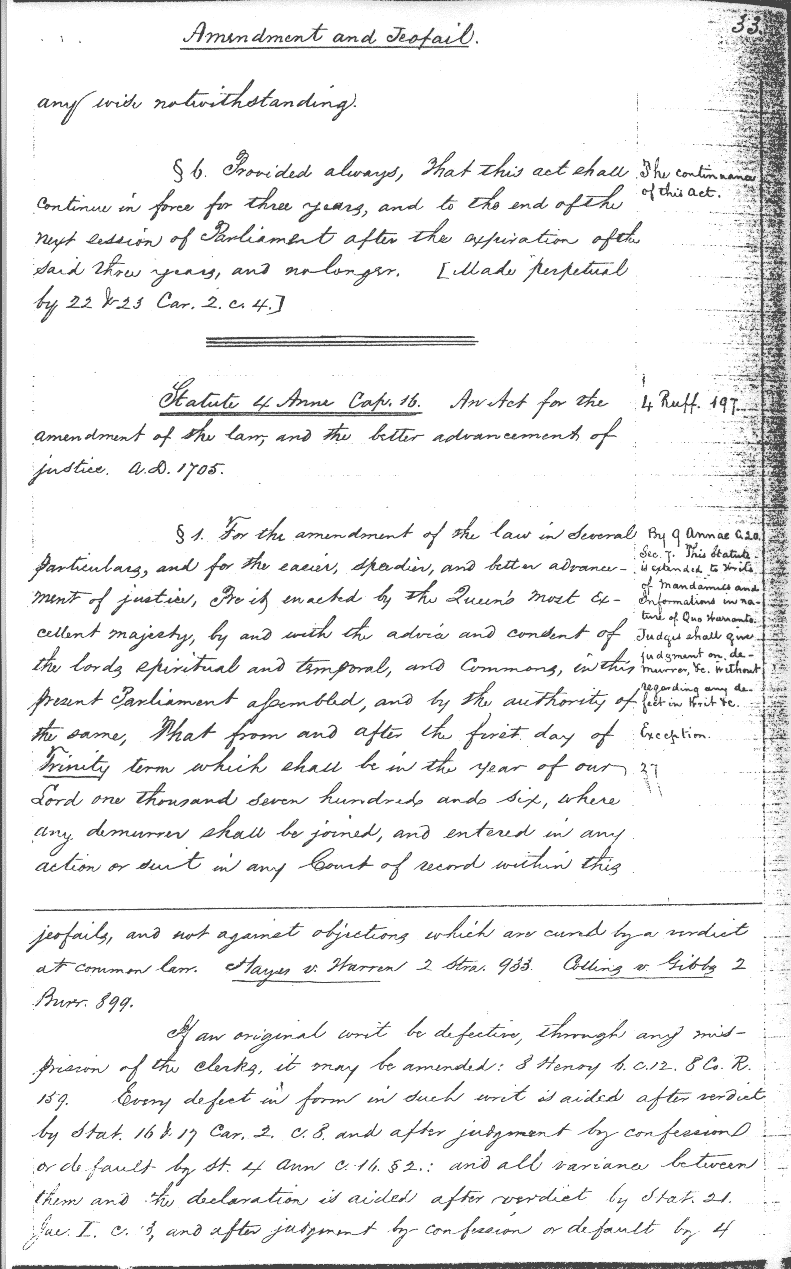 Amendment and Jeofail.
33.
any wise notwithstanding.
§ 6. Provided always, That this act shall
continue in force for three years, and to the end of the
next session of Parliament after the expiration of the
said three years, and no longer. [Made perpetual
by 22 & 23 Car. 2. c. 4.]
The continuance
of this Act.
Statute 4 Anne Cap. 16. An Act for the
amendment of the law, and the better advancement of
justice. A.D. 1705.
4 Ruff. 197.
§ 1. For the amendment of the law in several
particulars, and for the easier, speedier, and better advance-
ment of justice, Be it enacted by the Queen's most Ex-
cellent majesty, by and with the advice and consent of
the lords spiritual and temporal, and Commons, in this
present Parliament assembled, and by the authority of
the same, That from and after the first day of
Trinity term which shall be in the year of our
Lord one thousand seven hundred and six, where
any demurrer shall be joined, and entered in any
action or suit in any Court of record within this
By 9 Annae C. 20.
Sec. 7. This Statute
is extended to Writs
of Mandamus and
Informations in na-
ture of Quo Warranto.
Judges shall give
judgment on de-
murrer, &c. without
regarding any de-
fect in Writ &c.
Exception.
27
jeofails, and not against objections which are cured by a verdict
at common law. Hayes v. Warren 2 Stra. 933. Collins v. Gibbs 2
Burr. 899.
If an original writ be defective, through any mis-
prision of the clerks, it may be amended: 8 Henry 6. c. 12. 8 Co. R.
159. Every defect in form in such writ is aided after verdict
by Stat. 16 & 17 Car. 2. c. 8. and after judgment by confession
or default by St. 4 Ann c. 16. § 2.: and all variance between
them and the declaration is aided after verdict by Stat. 21.
Jac. I. c. 13, and after judgment by confession or default by 4